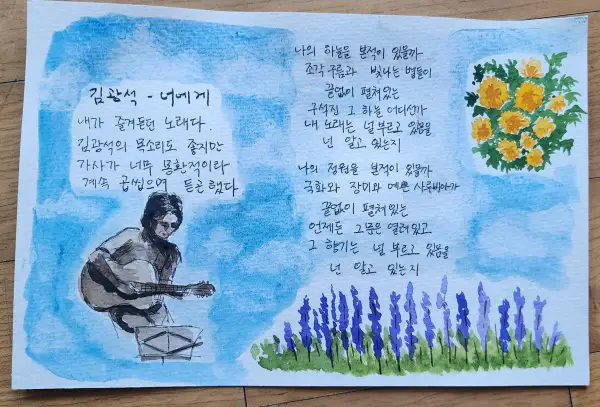 김광석 - 너에게
내가 즐겨듣던 노래다.
김광석의 목소리도 좋지만
가사가 너무 몽환적이라
계속 곱씹으며 듣곤 했다
나의 하늘을 본적이 있을까
조각 구름과 빛나는 별들이
끝없이 펼쳐있는
구석진 그 하늘 어디선가
내 노래는 널 부르고 있음을
넌 알고 있는지
나의 정원을 본적이 있을까
국화와 장미와 예쁜 사루비아가
끝없이 펼쳐있는
언제든 그 문은 열려있고
그 향기는 널 부르고 있음을
넌 알고 있는지